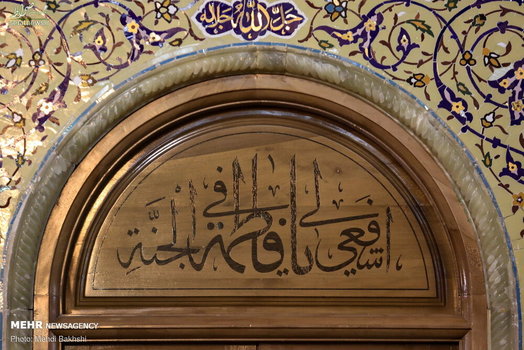 الله جل جلاله
يا فاطمة اشفعي لي في الجنة
MEHR NEWSAGENCY
Photo: Mehdi Bakhshi